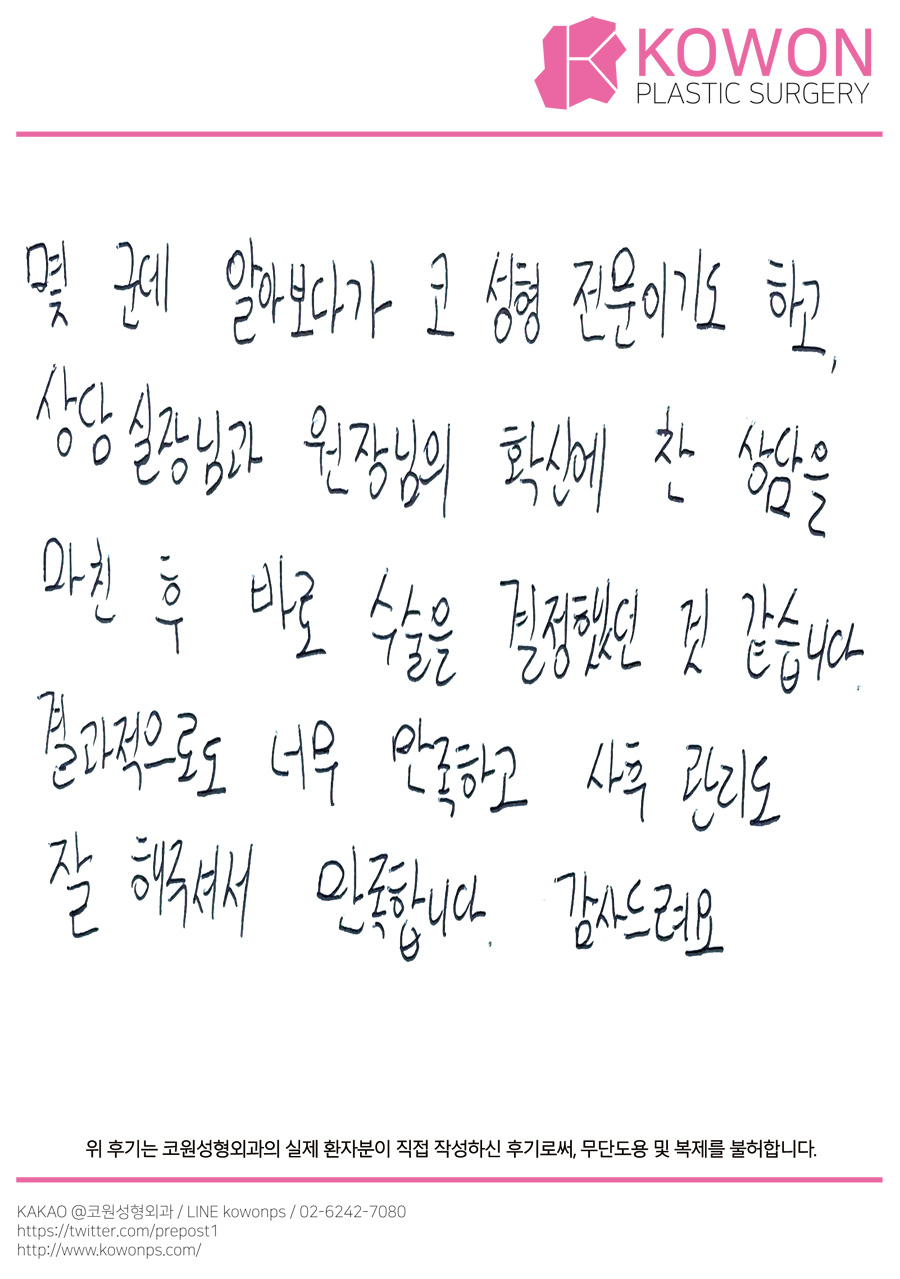 KOWON
PLASTIC SURGERY
몇 군데 알아보다가 코 성형 전문이기도 하고,
상담 실장님과 원장님의 확신에 찬 상담을
마친 후 바로 수술을 결정했던 것 같습니다.
결과적으로도 너무 만족하고 사후 관리도
잘 해주셔서 만족합니다. 감사드려요
위 후기는 코원성형외과의 실제 환자분이 직접 작성하신 후기로써, 무단도용 및 복제를 불허합니다.
KAKAO @코원성형외과 / LINE kowonps / 02-6242-7080
https://twitter.com/prepost1
http://www.kowonps.com/